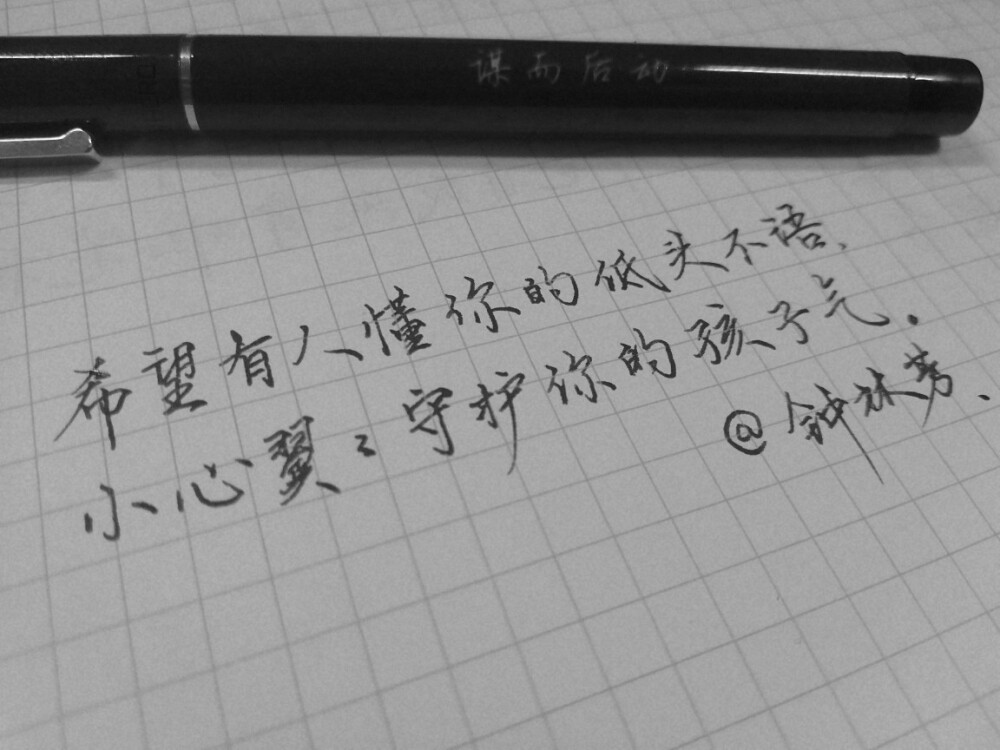 谋而后动
希望有人懂你的低头不语、
小心翼〻守护你的孩子气.
@钟林芳、